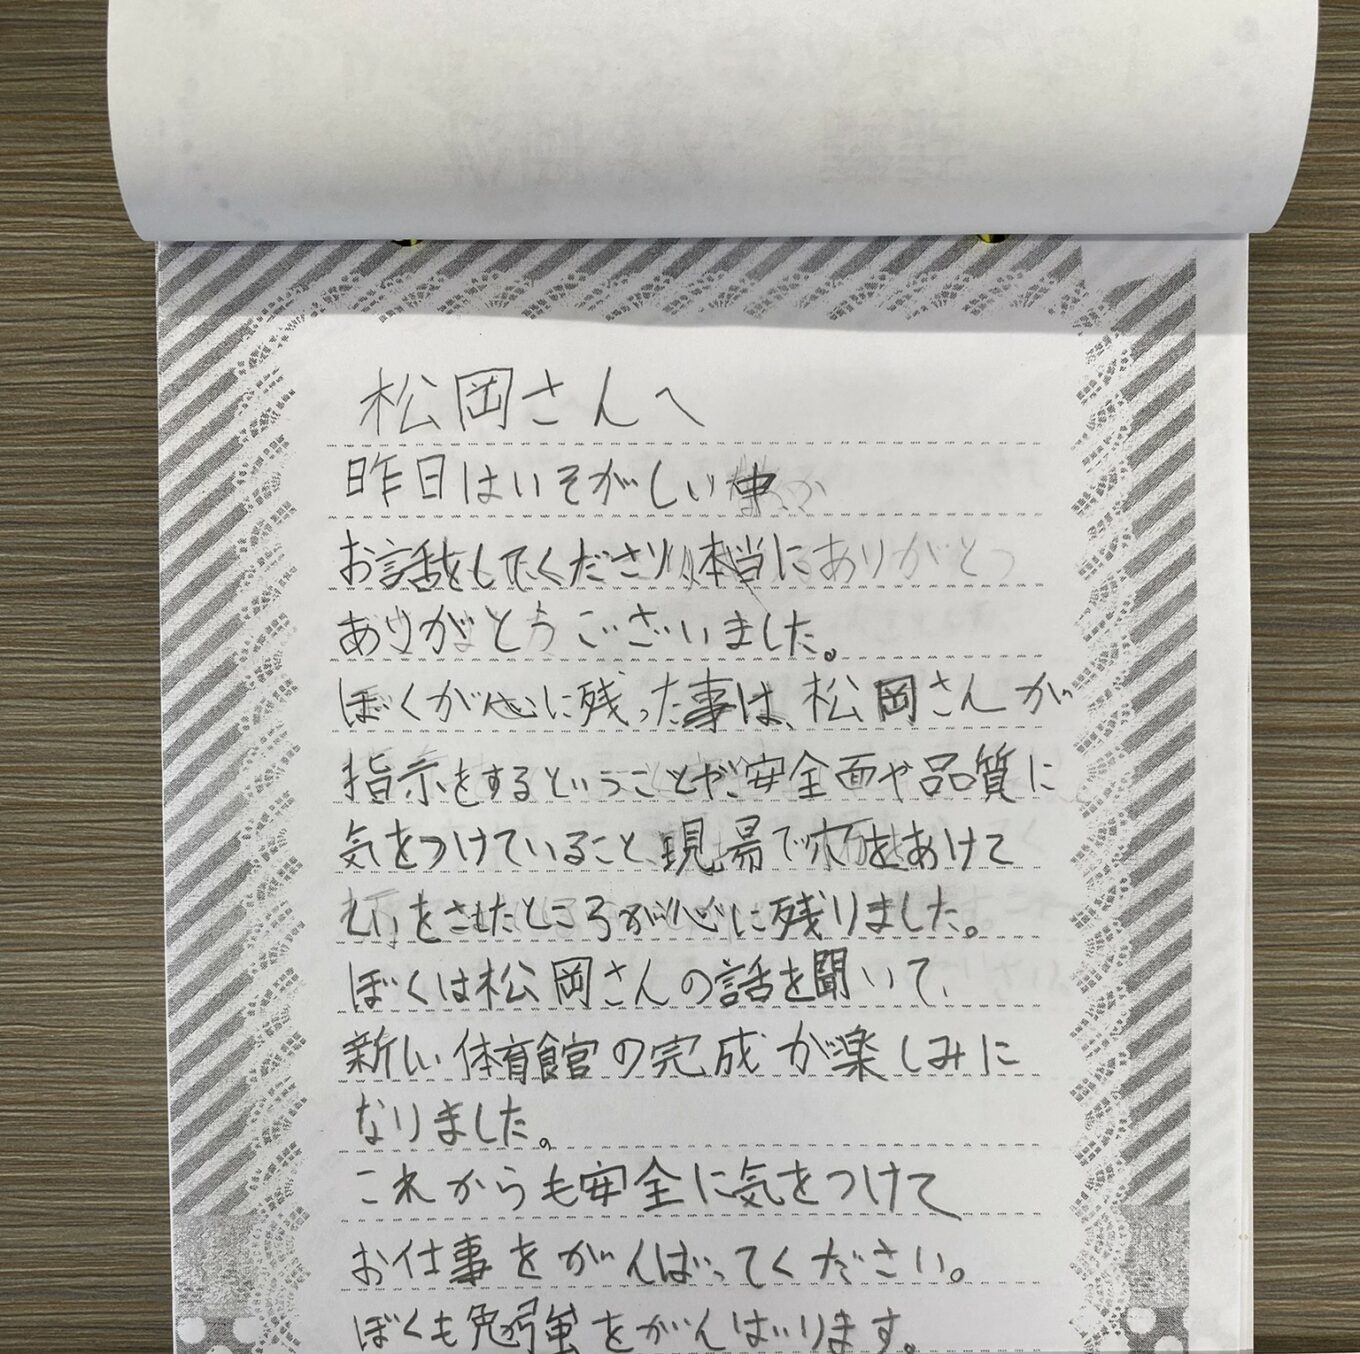 松岡さんへ
昨日はいそがしい中
お話をしてくださり、本当に
ありがとうございました。
ぼくが心に残った事は、松岡さんが
指示をするということや、安全面や品質に
気をつけていること、現場で柄をあけて
をされたところが心に残りました。
ぼくは松岡さんの話を聞いて、
新しい体育館の完成が楽しみに
なりました。
これからも安全に気をつけて
お仕事をがんばってください。
ぼくも勉強をがんばります。